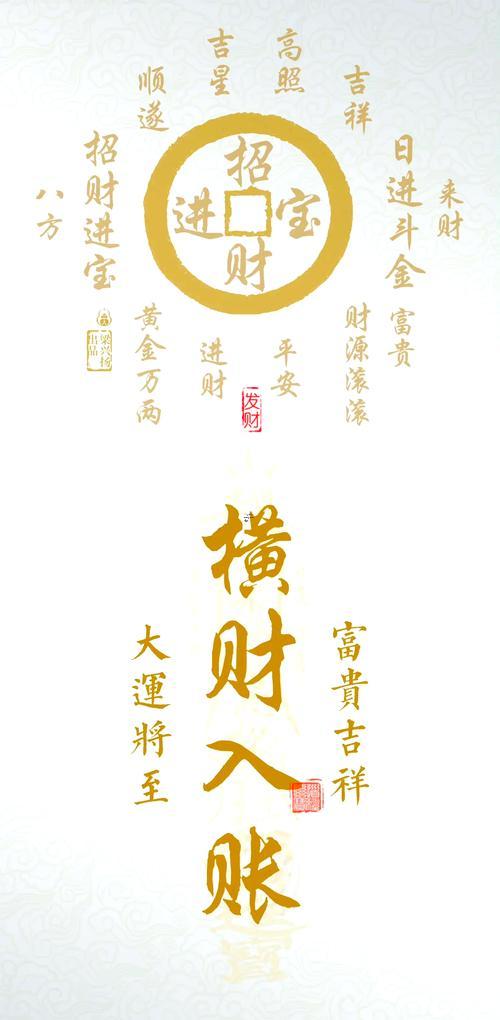 吉星
高照
顺遂
吉祥
招财进宝
日进斗金
八方
来财
招财进宝
黄金万两
进财
平安
财源滚滚
富贵
梁兴扬
出品
发财
横财入账
大運將至
富貴吉祥